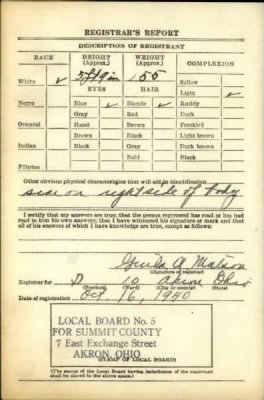 REGISTRAR'S REPORT
DESCRIPTION OF REGISTRANT
RACE HEIGHT (Approx.) WEIGHT (Approx.) COMPLEXION
White ✓ 5 ft 9 in 155 Sallow
EYES HAIR Light ✓
Negro Blue ✓ Blonde ✓ Ruddy
Gray Red Dark
Oriental Hazel Brown Freckled
Brown Black Light brown
Indian Black Gray Dark brown
Bald Black
Filipino
Other obvious physical characteristics that will aid in identification
on right side of body
I certify that my answers are true; that the person registered has read or has had
read to him his own answers; that I have witnessed his signature or mark and that
all of his answers of which I have knowledge are true, except as follows:
A. Matson
(Signature of registrar)
Registrar for D 10 Akron Ohio
(Precinct) (Ward) (City or county) (State)
Date of registration Oct. 16, 1940
LOCAL BOARD No. 5
FOR SUMMIT COUNTY
7 East Exchange Street
AKRON, OHIO
(STAMP OF LOCAL BOARD)
(The stamp of the Local Board having jurisdiction of the registrant
shall be placed in the above space.)